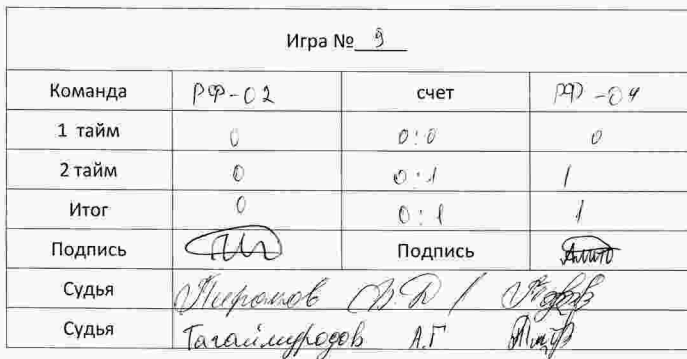 Игра № 9
Команда РФ-02 счет РФ-04
1 тайм 0 0:0 0
2 тайм 0 0:1 1
Итог 0 0:1 1
Подпись Подпись
Судья
Судья Тагаймуродов А.Г